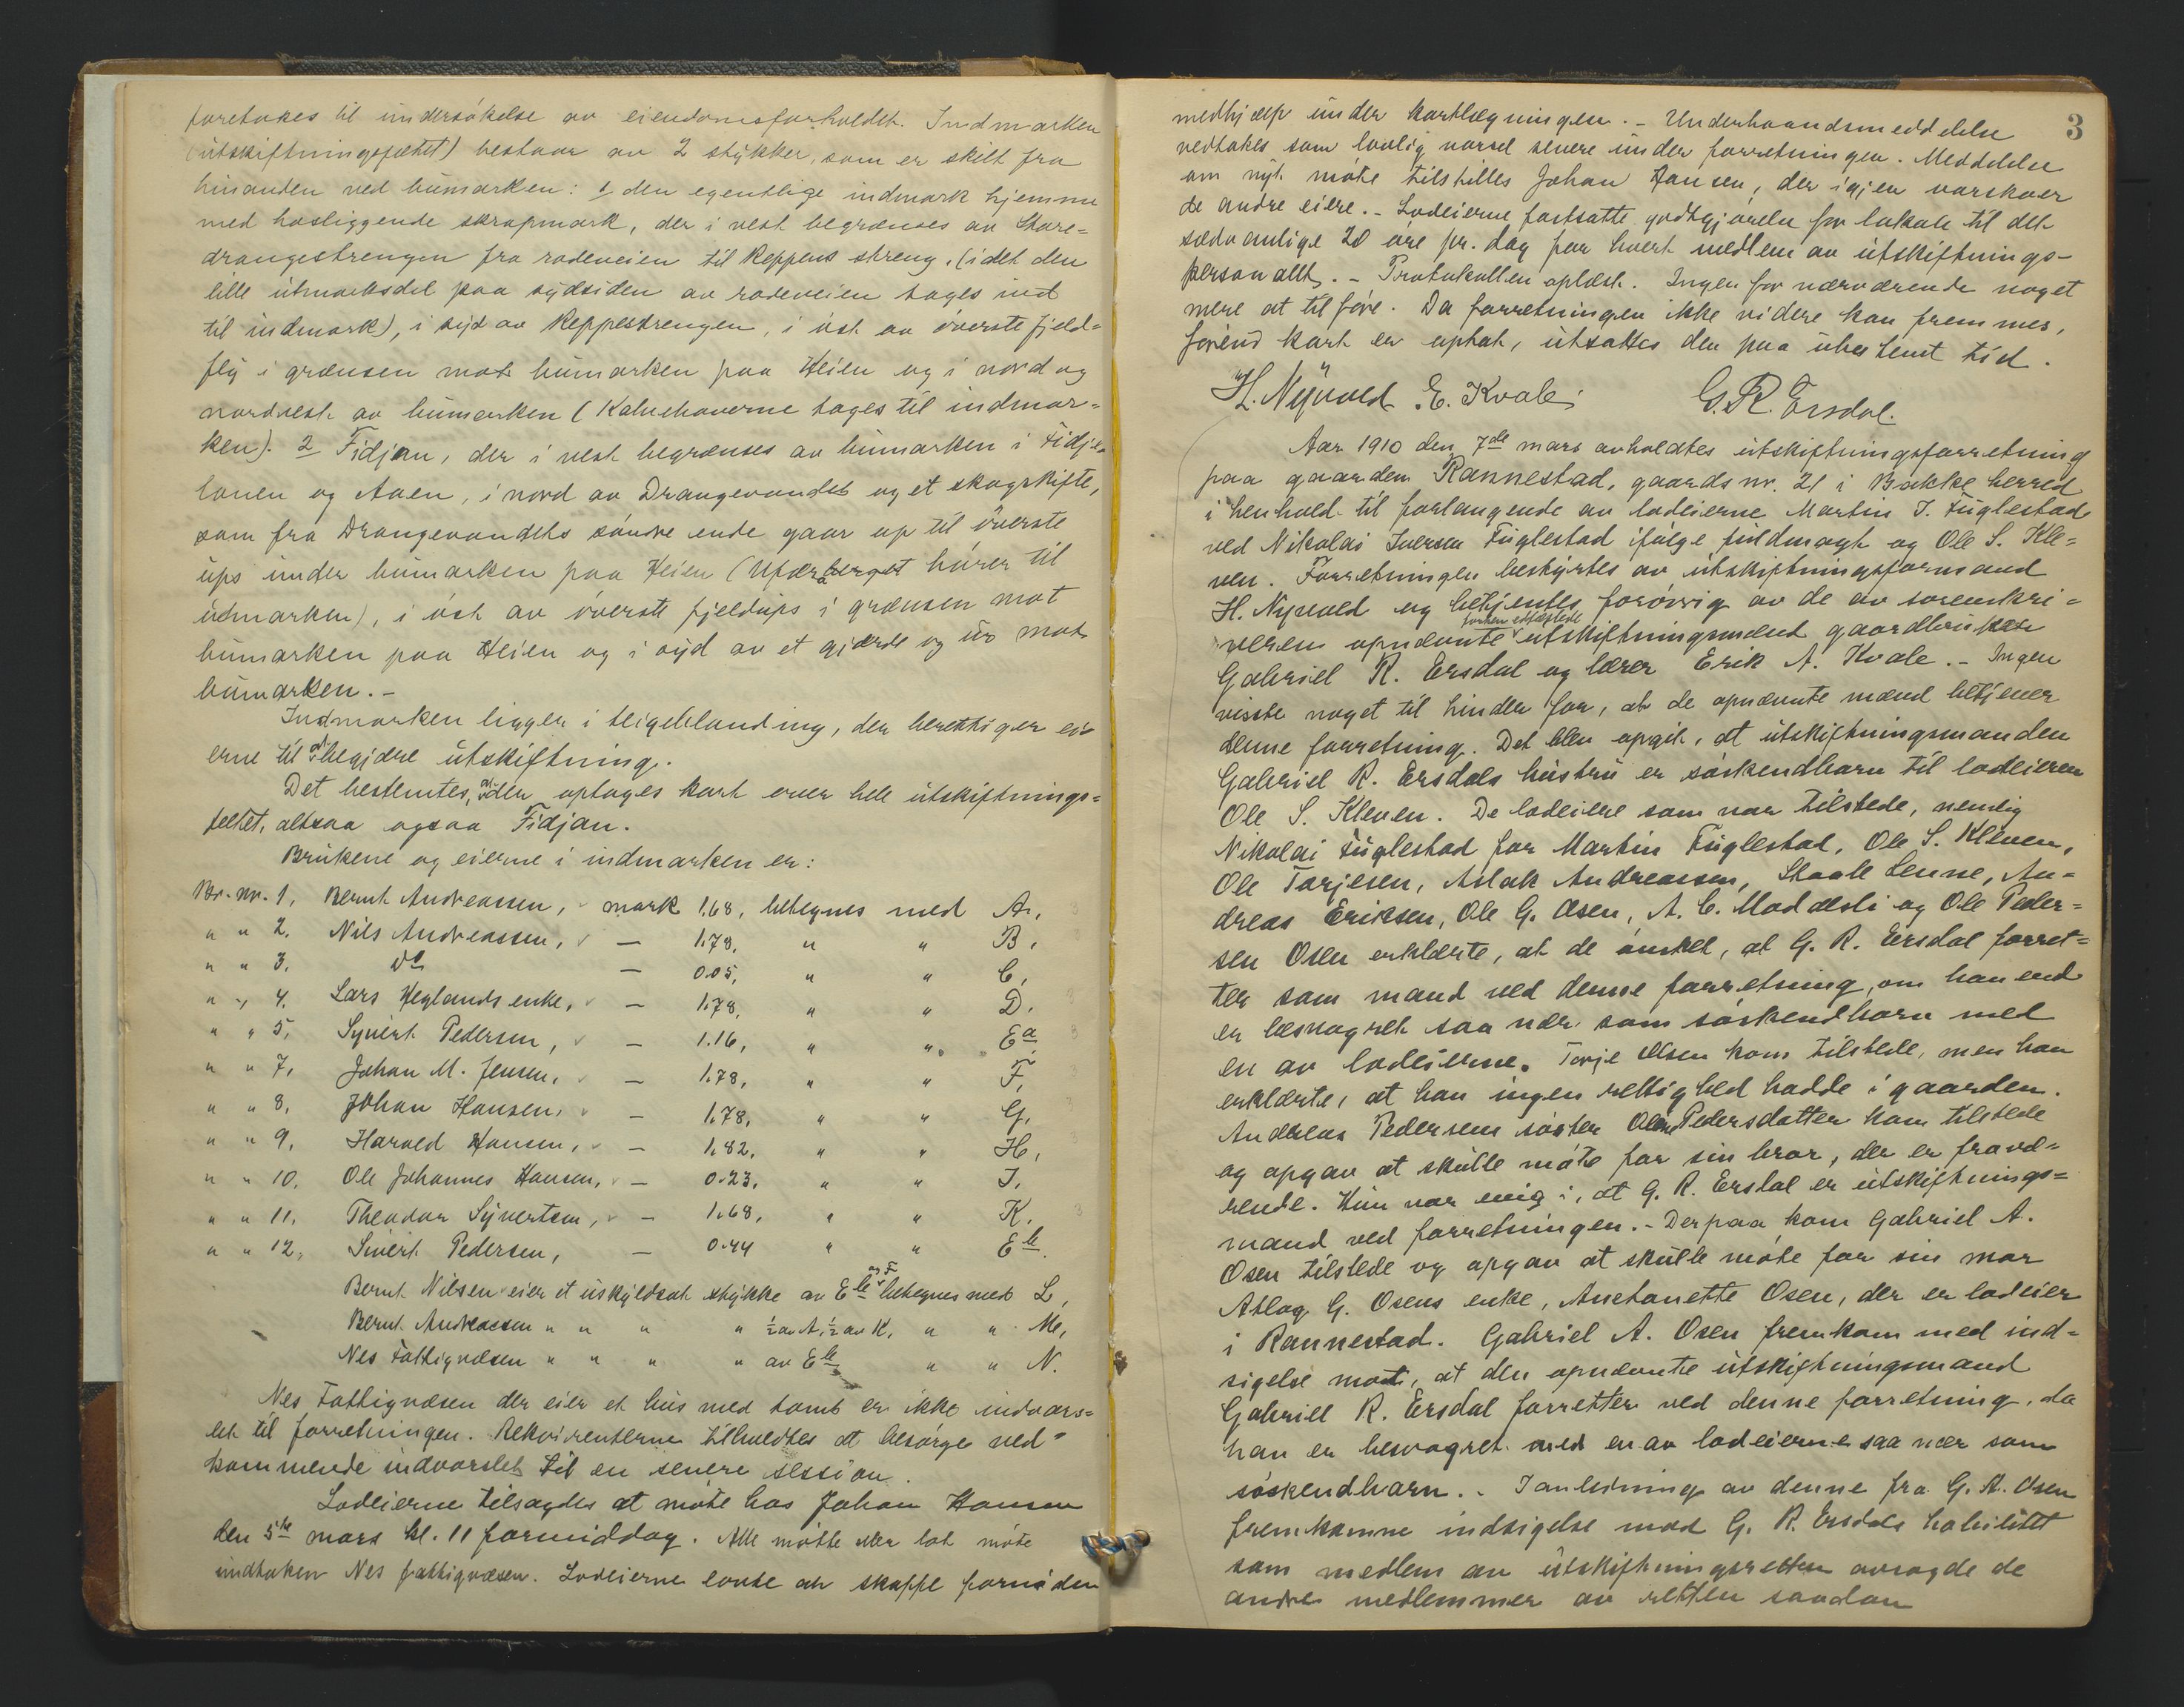 foretakes til undersökelse av eiendomsforholdet. Indmarken
(utskiftningsfeltet) bestaar av 2 stykker, som er skilt fra
hinanden ved bumarken: 1 den egentlige indmark hjemme
med hosliggende skrapmark, der i vest begrænses av Store=
drangestrengen fra rodeveien til Reppens streng, (idet den
lille utmarksdel paa sydsiden av rodeveien tages ind
til indmark), i syd av Reppestrengen, i öst av överste fjeld=
fly i grænsen mot bumarken paa Heien og i nord og
nordvest av bumarken (Kalvehaverne tages til indmar=
ken). 2 Fidjan, der i vest begrænses av bumarken i Fidje
lonen og Aaen, i nord av Drangevandet og et skogskifte,
som fra Drangevandets söndre ende gaar op til överste
ups under bumarken paa Heien (Ufærberget hörer til
udmarken), i öst av överste fjeldups i grænsen mot
bumarken paa Heien og i syd av et gjærde og ur mot
bumarken. -
Indmarken ligger i teigeblanding, der berettiger ei
erne til at begjære utskiftning.
Det bestemtes, at der optages kart over hele utskiftnings=
feltet, altsaa ogsaa Fidjan.
Brukene og eierne i indmarken er:
Br. nr. 1, Bernt Andreassen, mark 1.68, betegnes med A,
" " 2. Nils Andreassen, — 1.78, " " B,
" " 3. do — 0.05, " " C,
" " 4. Lars Heglands enke, — 1.78, " " D,
" " 5, Syvert Pedersen, — 1.16, " " Ea,
" " 7, Johan M. Jensen, — 1.78, " " F,
" " 8, Johan Hansen, — 1.78, " " G,
" " 9, Harald Hansen, — 1.82, " " H,
" " 10, Ole Johannes Hansen, — 0.23, " " I,
" " 11, Theodor Syvertsen, — 1.68, " " K.
" " 12, Sivert Pedersen, — 0.44 " " Eb.
Bernt Nilsen eier et uskyldsat stykke av Eb og F betegnes med L,
Bernt Andreassen " " " " ½ av A, ½ av K, " " M,
Nes Fattigvæsen " " " " av Eb " " N.
Nes Fattigvæsen der eier et hus med tomt er ikke indvars=
let til forretningen. Rekvirenterne tilholdtes at besörge ved=
kommende indvarslet til en senere session.
Lodeierne tilsagdes at möte hos Johan Hansen
den 5te mars kl. 11 formiddag. Alle mötte eller lot möte
undtaken Nes fattigvæsen. Lodeierne lovte at skaffe fornöden
3
medhjælp under kartlægningen. - Underhaandsmeddelelse
vedtakes som lovlig varsel senere under forretningen. Meddelelse
om nyt möte tilstilles Johan Hansen, der igjen varskoer
de andre eiere. - Lodeierne fastsatte godtgjörelse for lokale til det
sædvanlige 20 öre pr. dag for hvert medlem av utskiftnings-
personallet. - Protokollen oplæst. Ingen for nærværende noget
mere at tilföie. Da forretningen ikke videre kan fremmes,
förend kart er optat, utsattes den paa ubestemt tid.
H. Nyvold E. Kvale G. R. Ersdal.
Aar 1910 den 7de mars avholdtes utskiftningsforretning
paa gaarden Rannestad, gaards nr. 21 i Bakke herred
i henhold til forlangende av lodeierne Martin T. Fuglestad
ved Nikolai Iversen Fuglestad ifölge fuldmagt og Ole S. Kle=
ven. Forretningen bestyrtes av utskiftningsformand
H. Nyvold og betjentes forövrig av de av sorenskri=
veren opnævnte forhen edfæstede utskiftningsmænd gaardbruker
Gabriel R. Ersdal og lærer Erik A. Kvale. - Ingen
visste noget til hinder for, at de opnævnte mænd betjener
denne forretning. Det blev opgit, at utskiftningsmanden
Gabriel R. Ersdals hustru er söskendbarn til lodeieren
Ole S. Kleven. De lodeiere som var tilstede, nemlig
Nikolai Fuglestad for Martin Fuglestad, Ole S. Kleven,
Ole Tarjesen, Aslak Andreassen, Staale Lenne, An=
dreas Eriksen, Ole G. Osen, A. C. Moddesli og Ole Peder=
sen Osen erklærte, at de önsket, at G. R. Ersdal forret=
ter som mand ved denne forretning, om han end
er besvogret saa nær som söskendbarn med
en av lodeierne. Torje Olsen kom tilstede, men han
erklærte, at han ingen rettighed hadde i gaarden.
Andreas Pedersens söster Olene Pedersdatter kom tilstede
og opgav at skulle möte for sin bror, der er fravæ=
rende. Hun var enig i, at G. R. Ersdal er utskiftnings=
mand ved forretningen. - Derpaa kom Gabriel A.
Osen tilstede og opgav at skulle möte for sin mor
Atlag G. Osens enke, Anetonette Osen, der er lodeier
i Rannestad. Gabriel A. Osen fremkom med ind=
sigelse mot, at den opnævnte utskiftningsmand
Gabriel R. Ersdal forretter ved denne forretning, da
han er besvogret med en av lodeierne saa nær som
söskendbarn. - I anledning av denne fra G. A. Osen
fremkomne indsigelse mod G. R. Ersdals habilitet
som medlem av utskiftningsretten avsagde de
andre medlemmer av retten saadan